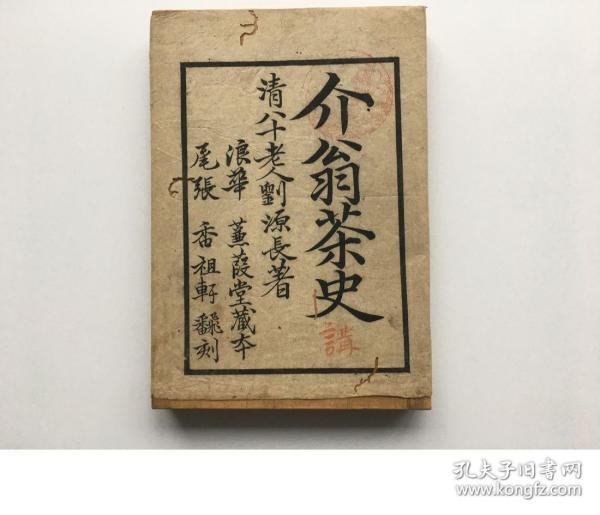 介翁茶史
講
清八十老人劉源長著
浪華 蒹葭堂藏本
尾張 香祖軒 翻刻
孔夫子旧书网
www.kongfz.com